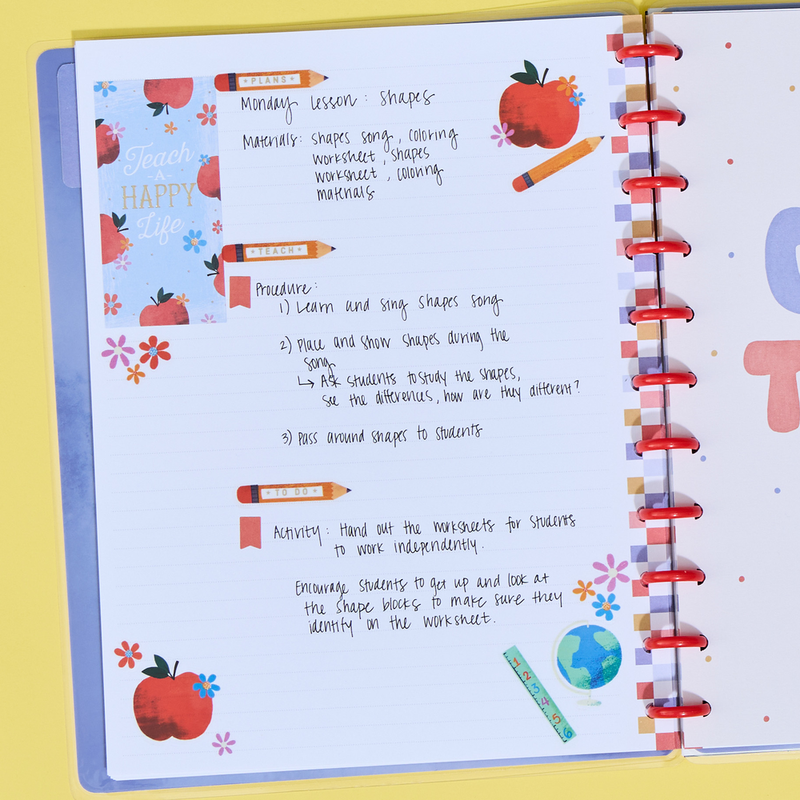 PLANS
Monday Lesson: Shapes
Materials: shapes song, coloring
worksheet, shapes
worksheet, coloring
materials
Teach
-A-
HAPPY
Life
TEACH
Procedure:
1) Learn and sing shapes song
2) Place and show shapes during the
song
↳ Ask students to study the shapes,
see the differences, how are they different?
3) Pass around shapes to students
TO DO
Activity: Hand out the worksheets for students
to work independently.
Encourage students to get up and look at
the shape blocks to make sure they
identify on the worksheet.
1 2 3 4 5 6
T